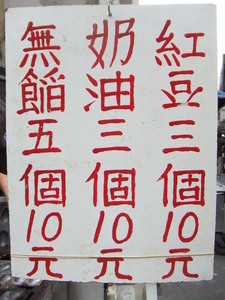 紅豆三個10元
奶油三個10元
無餡五個10元